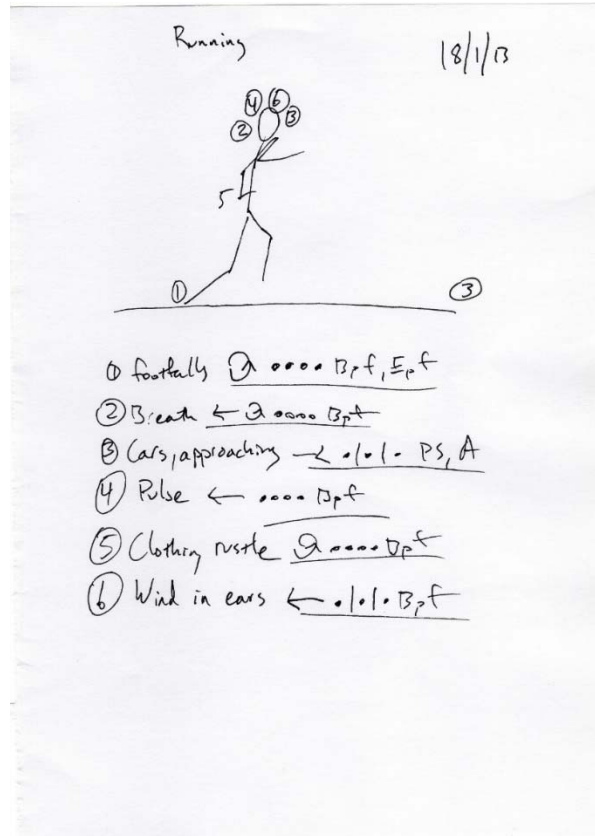 Running
18/1/13
④ ⑥
② ③
5
① ③
① footfalls •••• Bpf, Epf
② Breath ← •••• Bpf
③ Cars, approaching ← •/•/• PS, A
④ Pulse ← •••• Bpf
⑤ Clothing rustle •••• Bpf
⑥ Wind in ears ← •/•/• Bpf